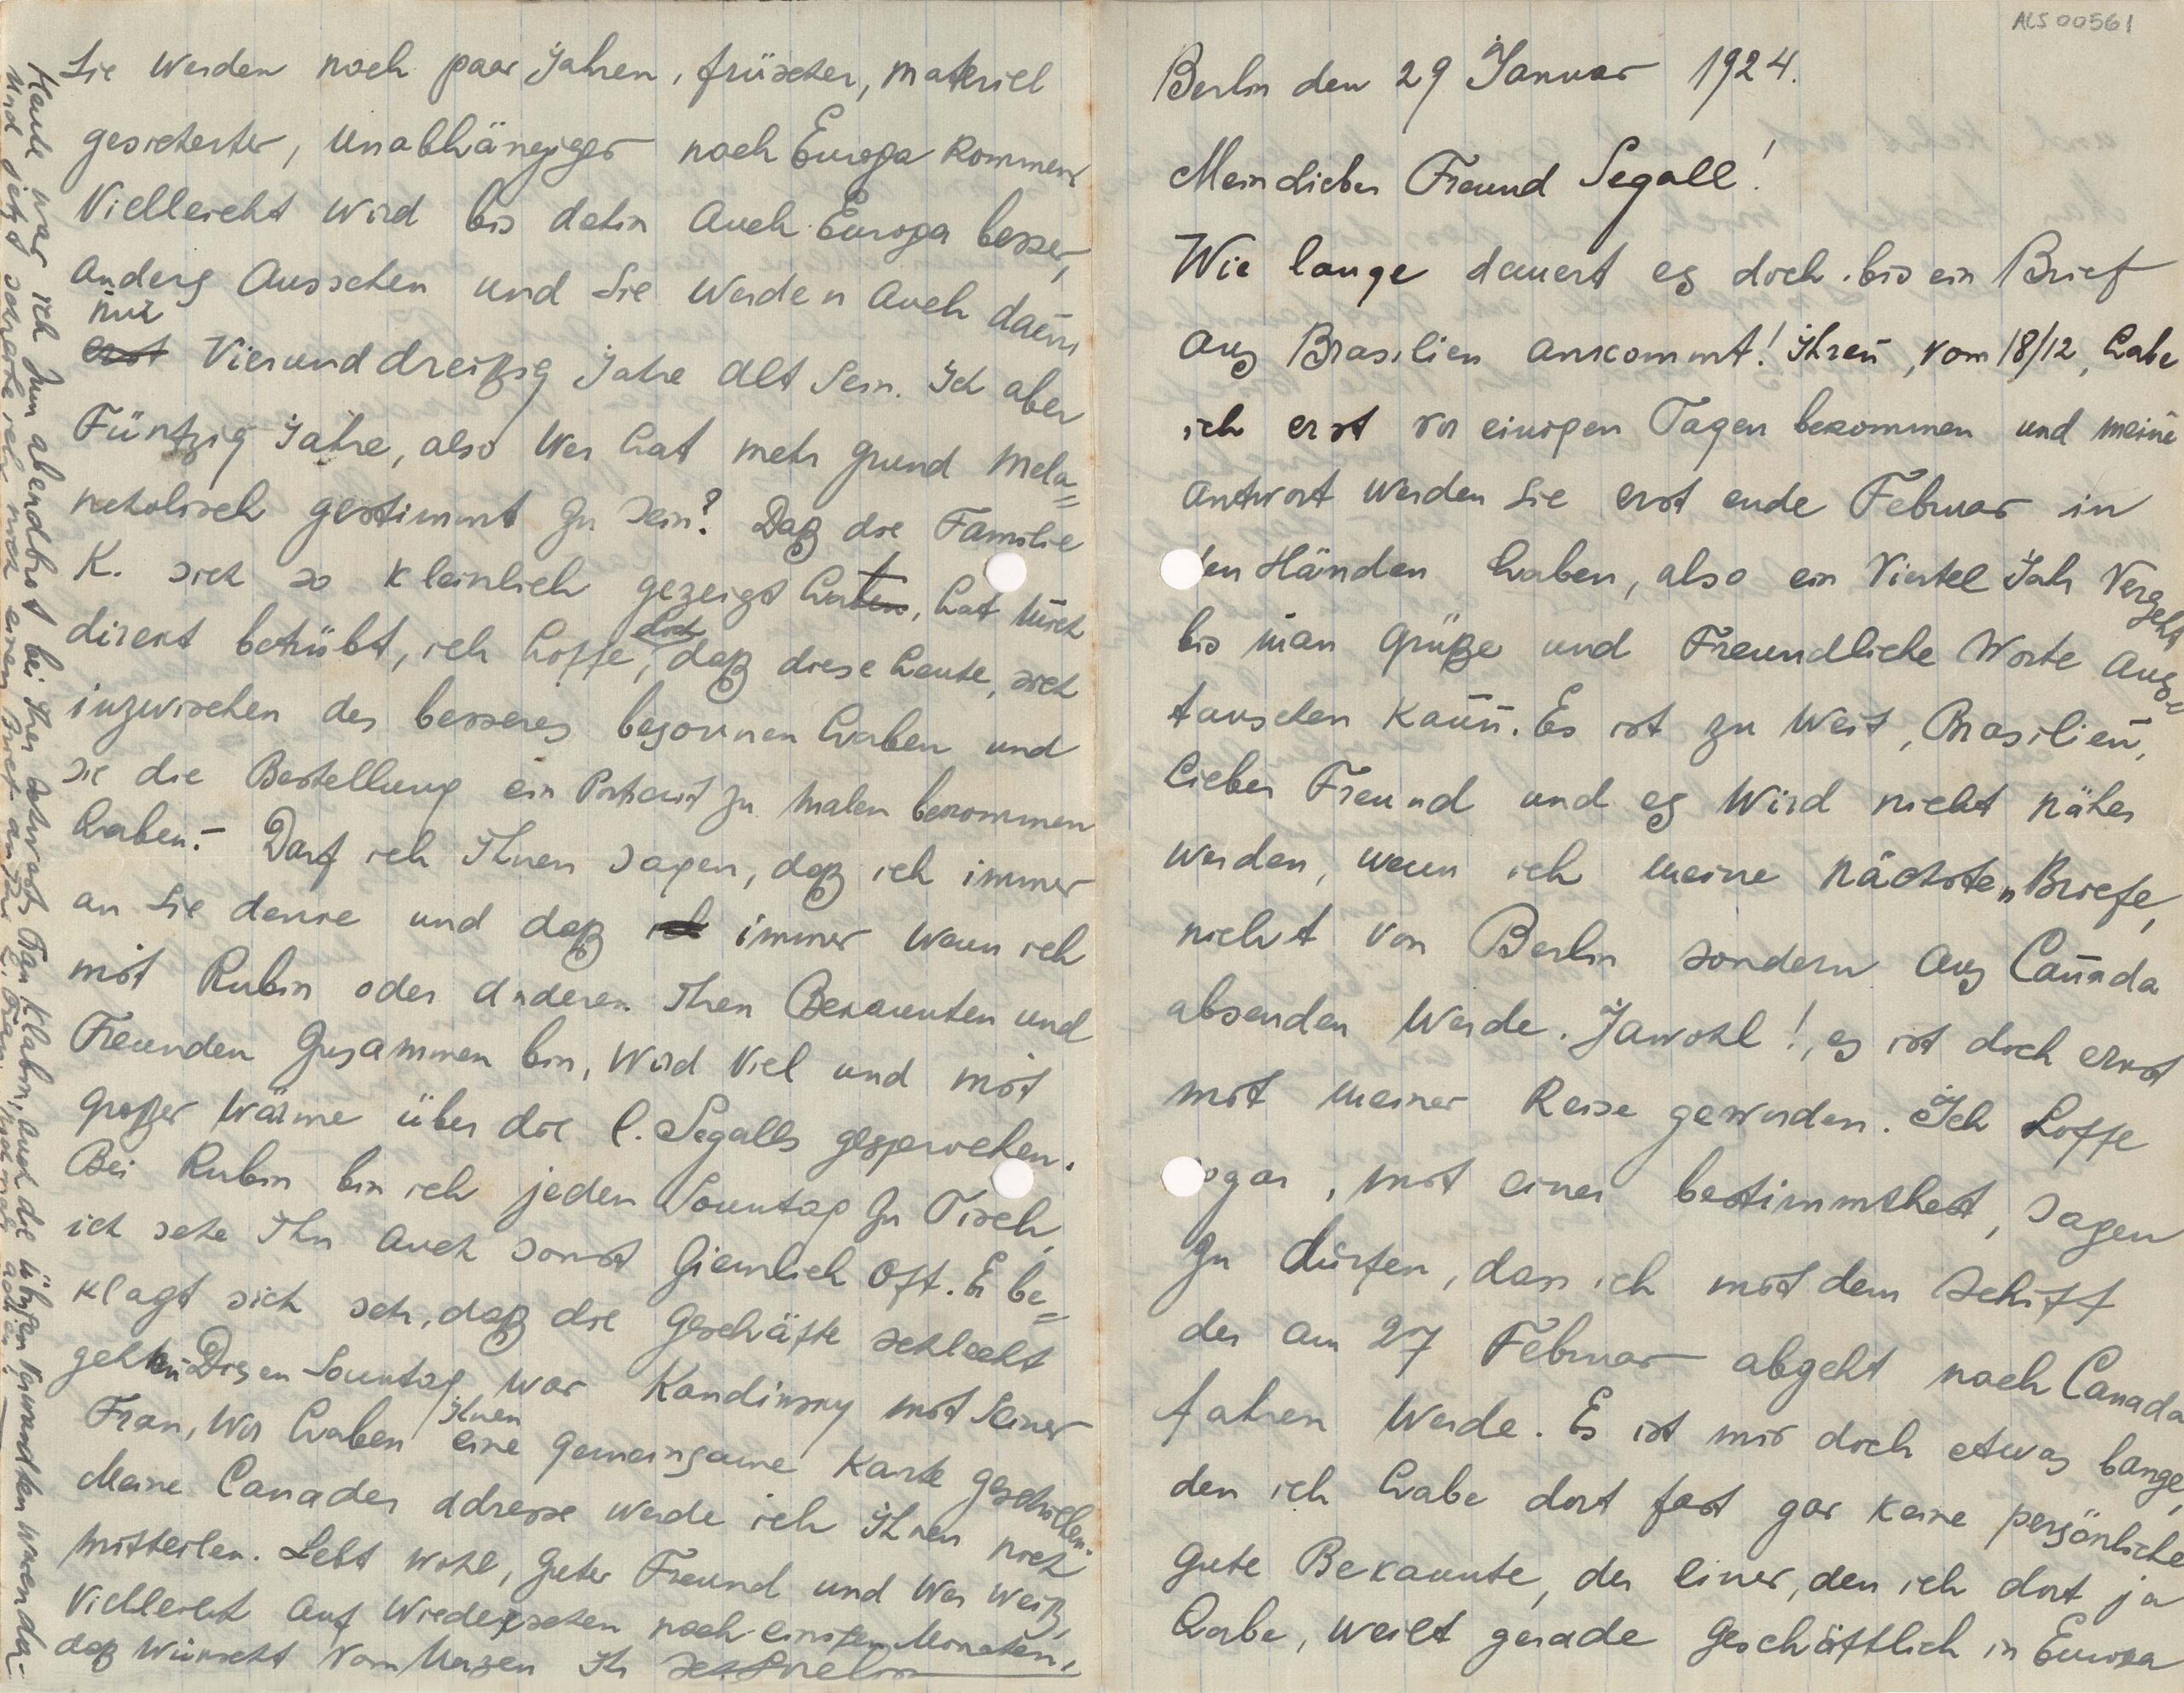 ALS 00561
Berlin den 29 Januar 1924.
Mein lieber Freund Segall!
Wie lange dauert es doch bis ein Brief
aus Brasilien ankommt! Ihren, vom 18/12, habe
ich erst vor einigen Tagen bekommen und meine
Antwort werden Sie erst ende Februar in
den Händen haben, also ein Viertel Jahr vergeht
bis man Grüße und Freundliche Worte aus=
tauschen kann. Es ist zu weit, Brasilien,
lieber Freund und es wird nicht näher
werden, wenn ich meine nächsten Briefe,
nicht von Berlin sondern aus Canada
absenden werde. Jawohl!, es ist doch ernst
mit meiner Reise geworden. Ich hoffe
sogar, mit einer bestimmtheit, sagen
zu dürfen, dass ich mit dem Schiff
der am 27 Februar abgeht nach Canada
fahren werde. Es ist mir doch etwas bange,
den ich habe dort fast gar keine persönliche
gute Bekannte, der einer, den ich dort ja
habe, weilt gerade geschäftlich in Europa
Sie werden nach paar Jahren, früscher, materiel
gesicherter, unabhängiger nach Europa kommen
Vielleicht wird bis dahin auch Europa besser,
anders aussehen und Sie werden auch dann
nur
erst Vierunddreißig Jahre alt sein. Ich aber
Fünfzig Jahre, also wer hat mehr grund mela=
ncholisch gestimmt zu sein? Daß die Familie
K. sich so kleinlich gezeigt hat, hat mich
direkt betrübt, ich hoffe, doch daß diese Leute, sich
inzwischen des besseres besonnen haben und
sie die Bestellung ein Portrait zu malen bekommen
haben.- Darf ich Ihnen sagen, daß ich immer
an Sie denke und daß ich immer wenn ich
mit Rubin oder anderen Ihren Bekannten und
Freunden zusammen bin, wird viel und mit
großer Wärme über die l. Segalls gesprochen.
Bei Rubin bin ich jeden Sonntag zu Tisch,
ich sehe Ihn auch sonst ziemlich oft. Er be=
klagt sich sehr, daß die Geschäfte schlecht
gehen Disen Sonntag war Kandinsky mit seiner
Frau, wir haben Ihnen eine gemeinsame Karte geschrieben.
Meine Canader adresse werde ich Ihnen noch
mitteilen. Lebt wohl, guter Freund und wer weiß,
Vielleicht auf Wiedersehen nach einigen Monaten,
daß wünscht vom Herzen Ihr
Heute war ich zum abendbrot bei Ihrer Frau Klabin, auch die übrigen Verwandten waren da-
und jetzt schreibe ich noch einen Brief an Ihre l. Frau,